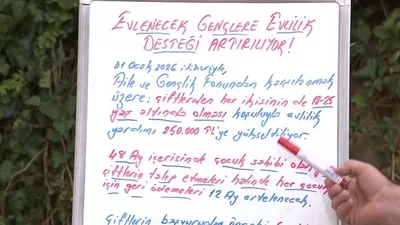 EVLENECEK GENÇLERE EVLİLİK
DESTEĞİ ARTIRILIYOR!
01 Ocak 2026 itibariyle,
Aile ve Gençlik Fonundan karşılanmak
üzere; çiftlerden her ikisinin de 18-25
yaş altında olması koşuluyla evlilik
yardımı 250.000 TL'ye yükseltiliyor.
48 Ay içerisinde çocuk sahibi olan
çiftlerin talep etmeleri halinde her çocuk
için geri ödemeleri 12 Ay ertelenecek.
Çiftlerin başvurudan önceki